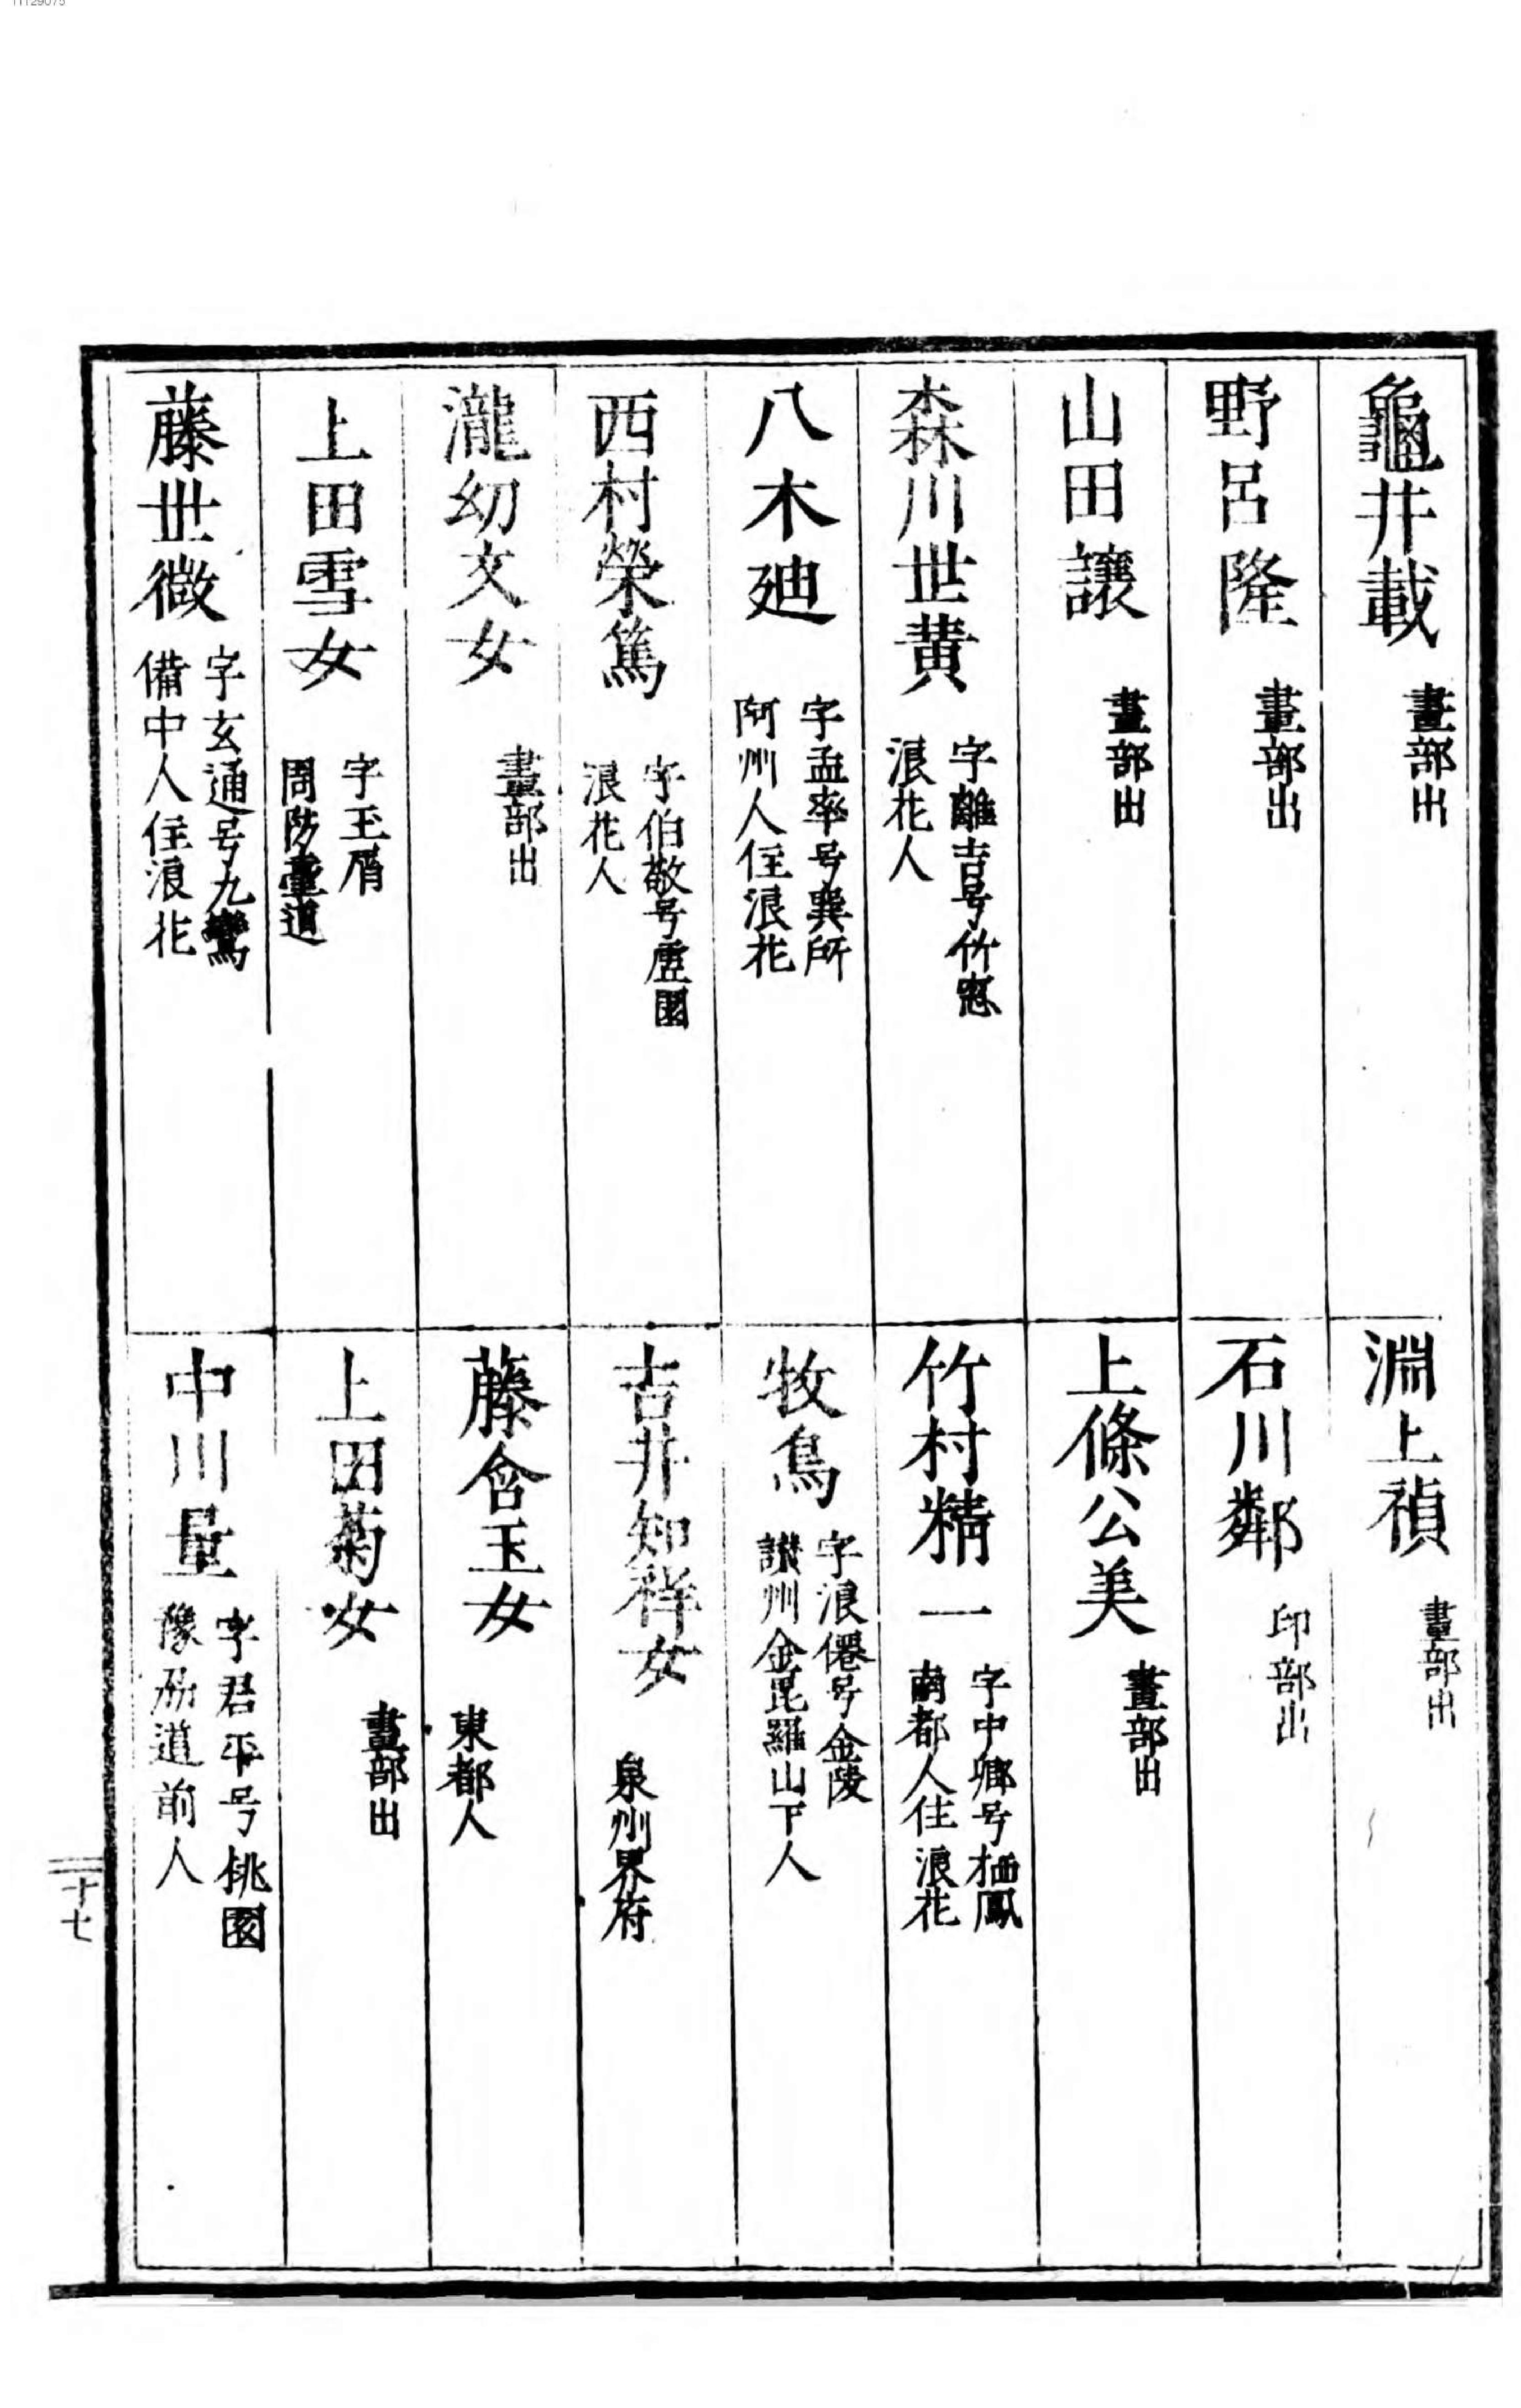 龜井載 畫部出
野呂隆 畫部出
山田讓 畫部出
森川世黄 字離吉号竹窓
浪花人
八木𢌞 字孟率号巽所
阿州人住浪花
西村榮篤 字伯敬号虛園
浪花人
瀧幼文女 畫部出
上田雪女 字玉屑
周防臺道
藤世徵 字玄通号九鸞
備中人住浪花
淵上禎 畫部出
石川鄰 印部出
上條公美 畫部出
竹村精一 字中鄉号栖鳳
南都人住浪花
牧鳥 字浪僊号金陵
讃州金毘羅山下人
吉井知祥女 泉州界府
藤含玉女 東都人
上田菊女 畫部出
中川量 字君平号桃園
豫州道前人
二十七
11129075